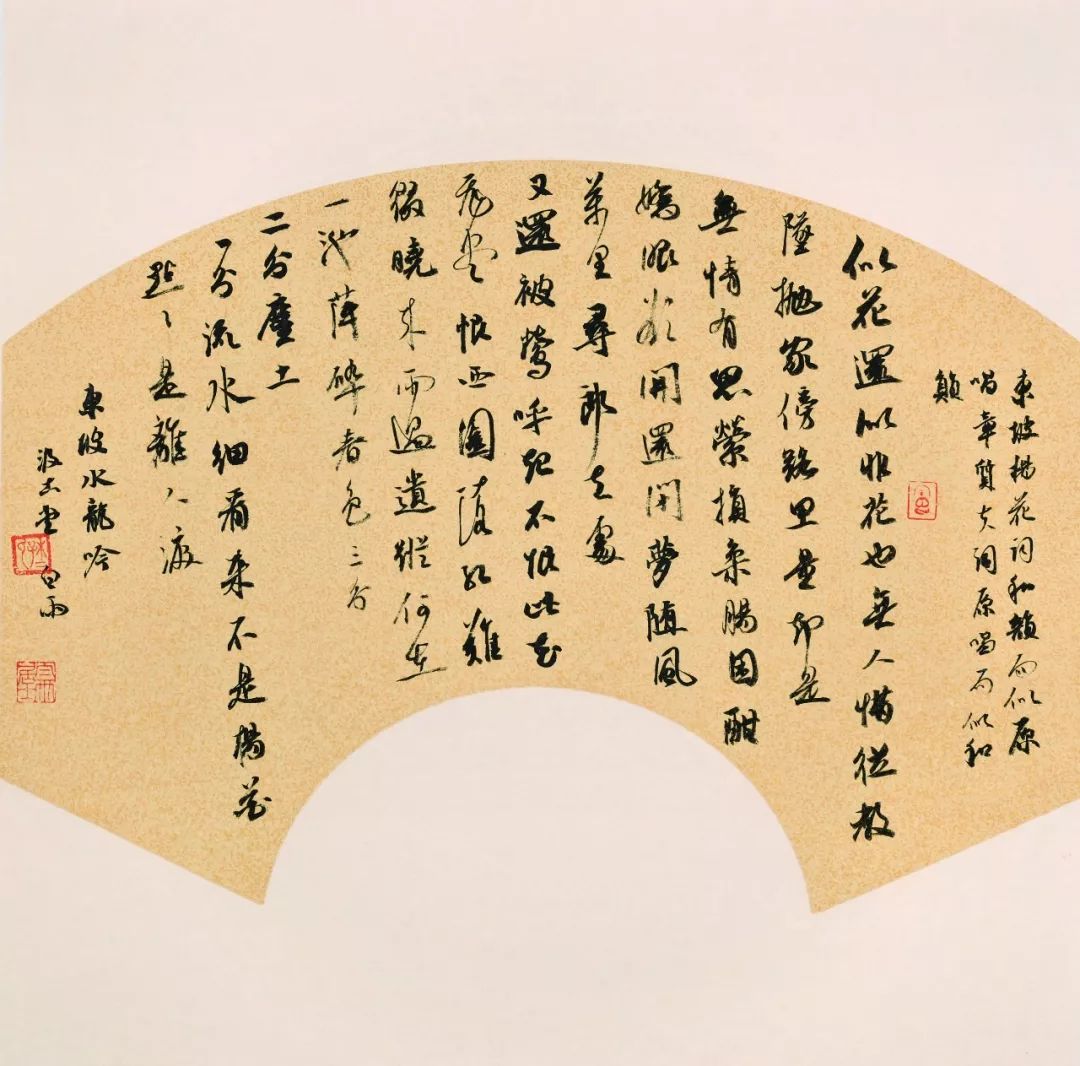 東坡楊花詞和韻而似原
唱章質夫詞原唱而似和
韻
似花還似非花也無人惜從教
墜拋家傍路思量却是
無情有思縈損柔腸困酣
嬌眼欲開還閉夢隨風
萬里尋郎去處
又還被鶯呼起不恨此花
飛盡恨西園落紅難
綴曉來雨過遺蹤何在
一池萍碎春色三分
二分塵土
一分流水細看來不是楊花
點〻是離人淚
東坡水龍吟
汲古堂白雨